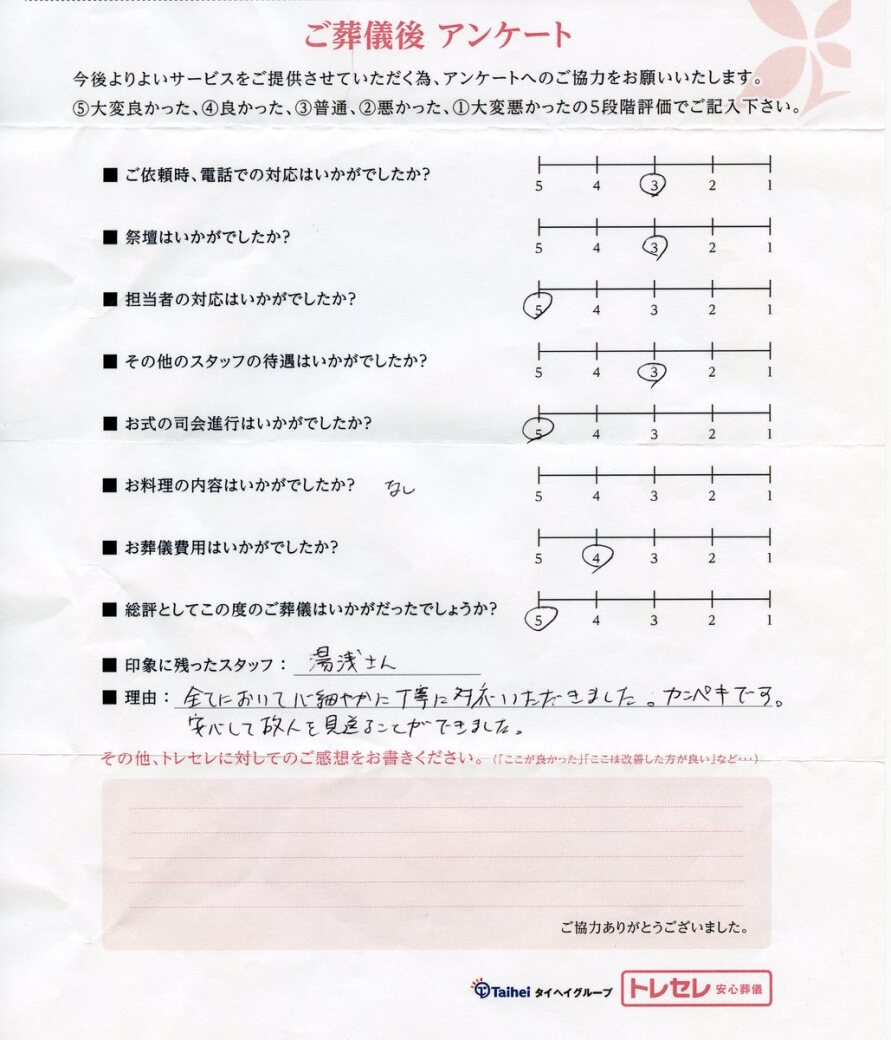 ご葬儀後 アンケート
今後よりよいサービスをご提供させていただく為、アンケートへのご協力をお願いいたします。
⑤大変良かった、④良かった、③普通、②悪かった、①大変悪かったの5段階評価でご記入下さい。
■ ご依頼時、電話での対応はいかがでしたか?
5 4 3 2 1
■ 祭壇はいかがでしたか?
5 4 3 2 1
■ 担当者の対応はいかがでしたか?
5 4 3 2 1
■ その他のスタッフの待遇はいかがでしたか?
5 4 3 2 1
■ お式の司会進行はいかがでしたか?
5 4 3 2 1
■ お料理の内容はいかがでしたか? なし
5 4 3 2 1
■ お葬儀費用はいかがでしたか?
5 4 3 2 1
■ 総評としてこの度のご葬儀はいかがだったでしょうか?
5 4 3 2 1
■ 印象に残ったスタッフ: 湯浅さん
■ 理由: 全てにおいて心細やかに丁寧に対応いただきました。カンペキです。
安心して故人を見送ることができました。
その他、トレセレに対してのご感想をお書きください。(「ここが良かった」「ここは改善した方が良い」など…)
ご協力ありがとうございました。
Taihei タイヘイグループ トレセレ 安心葬儀